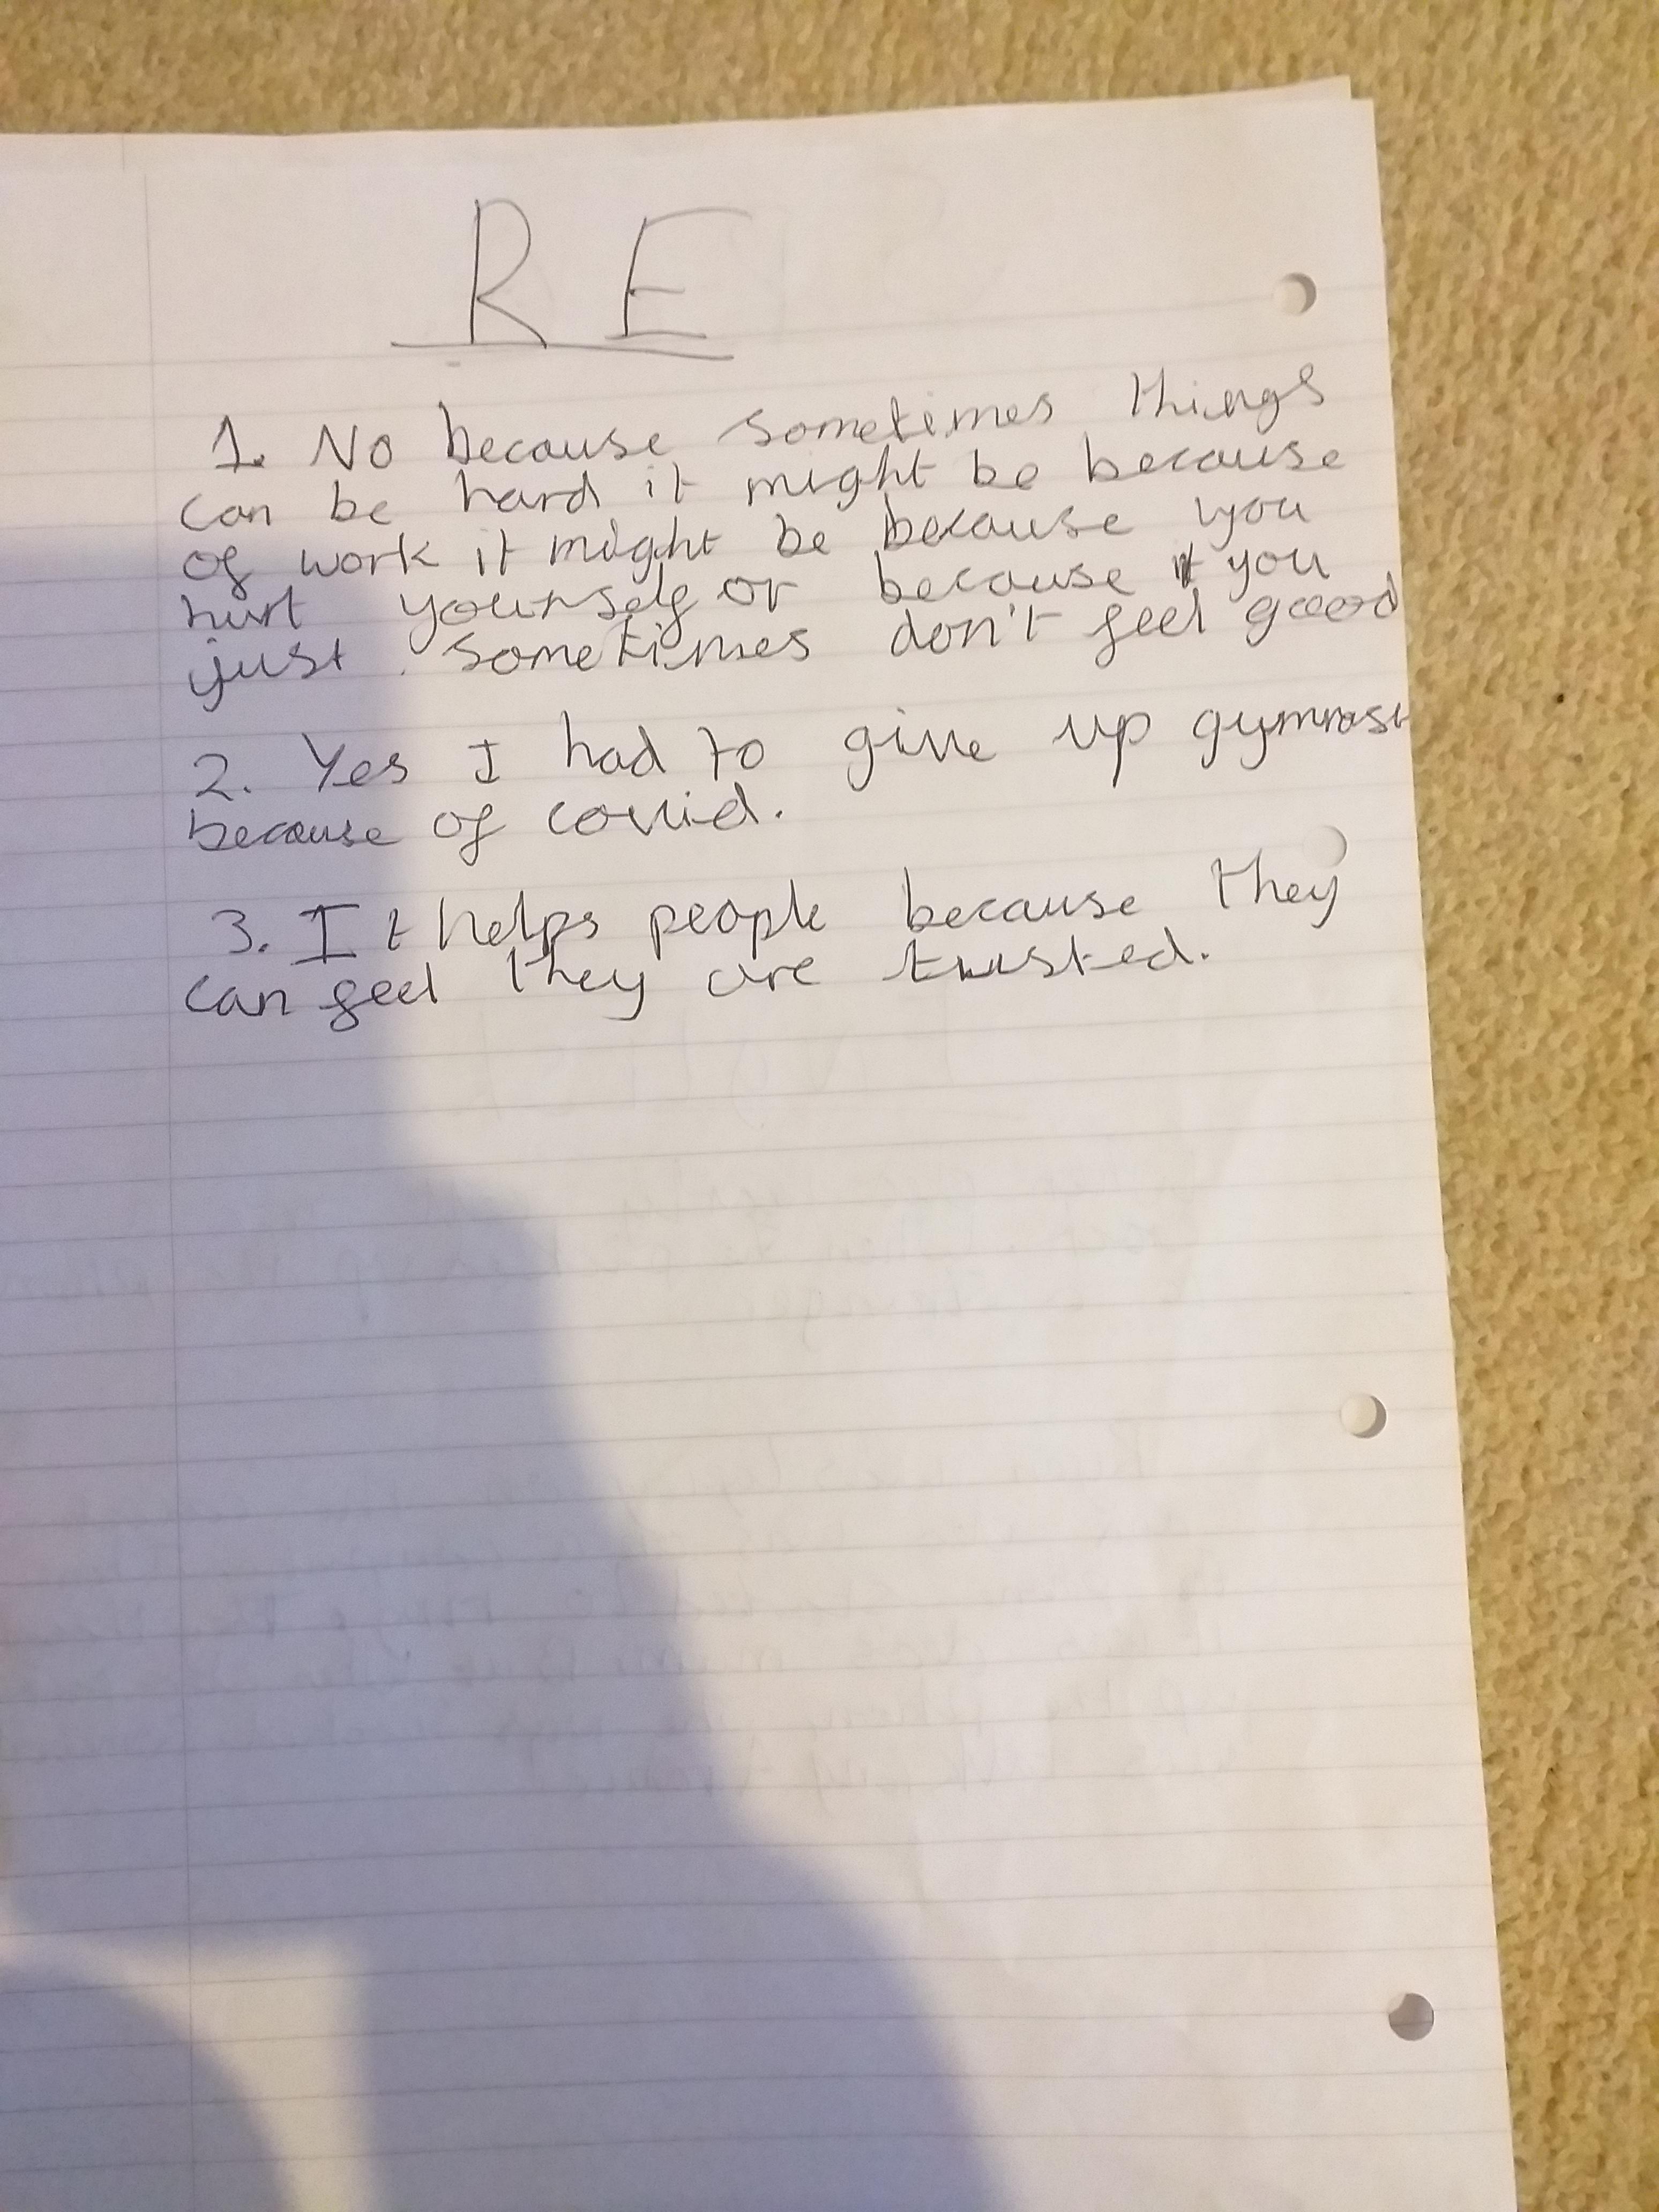 R E
1. No because sometimes things
can be hard it might be because
of work it might be because you
hurt yourself or because you
just sometimes don't feel good
2. Yes I had to give up gymnast
because of covid.
3. It helps people because they
can feel they are trusted.